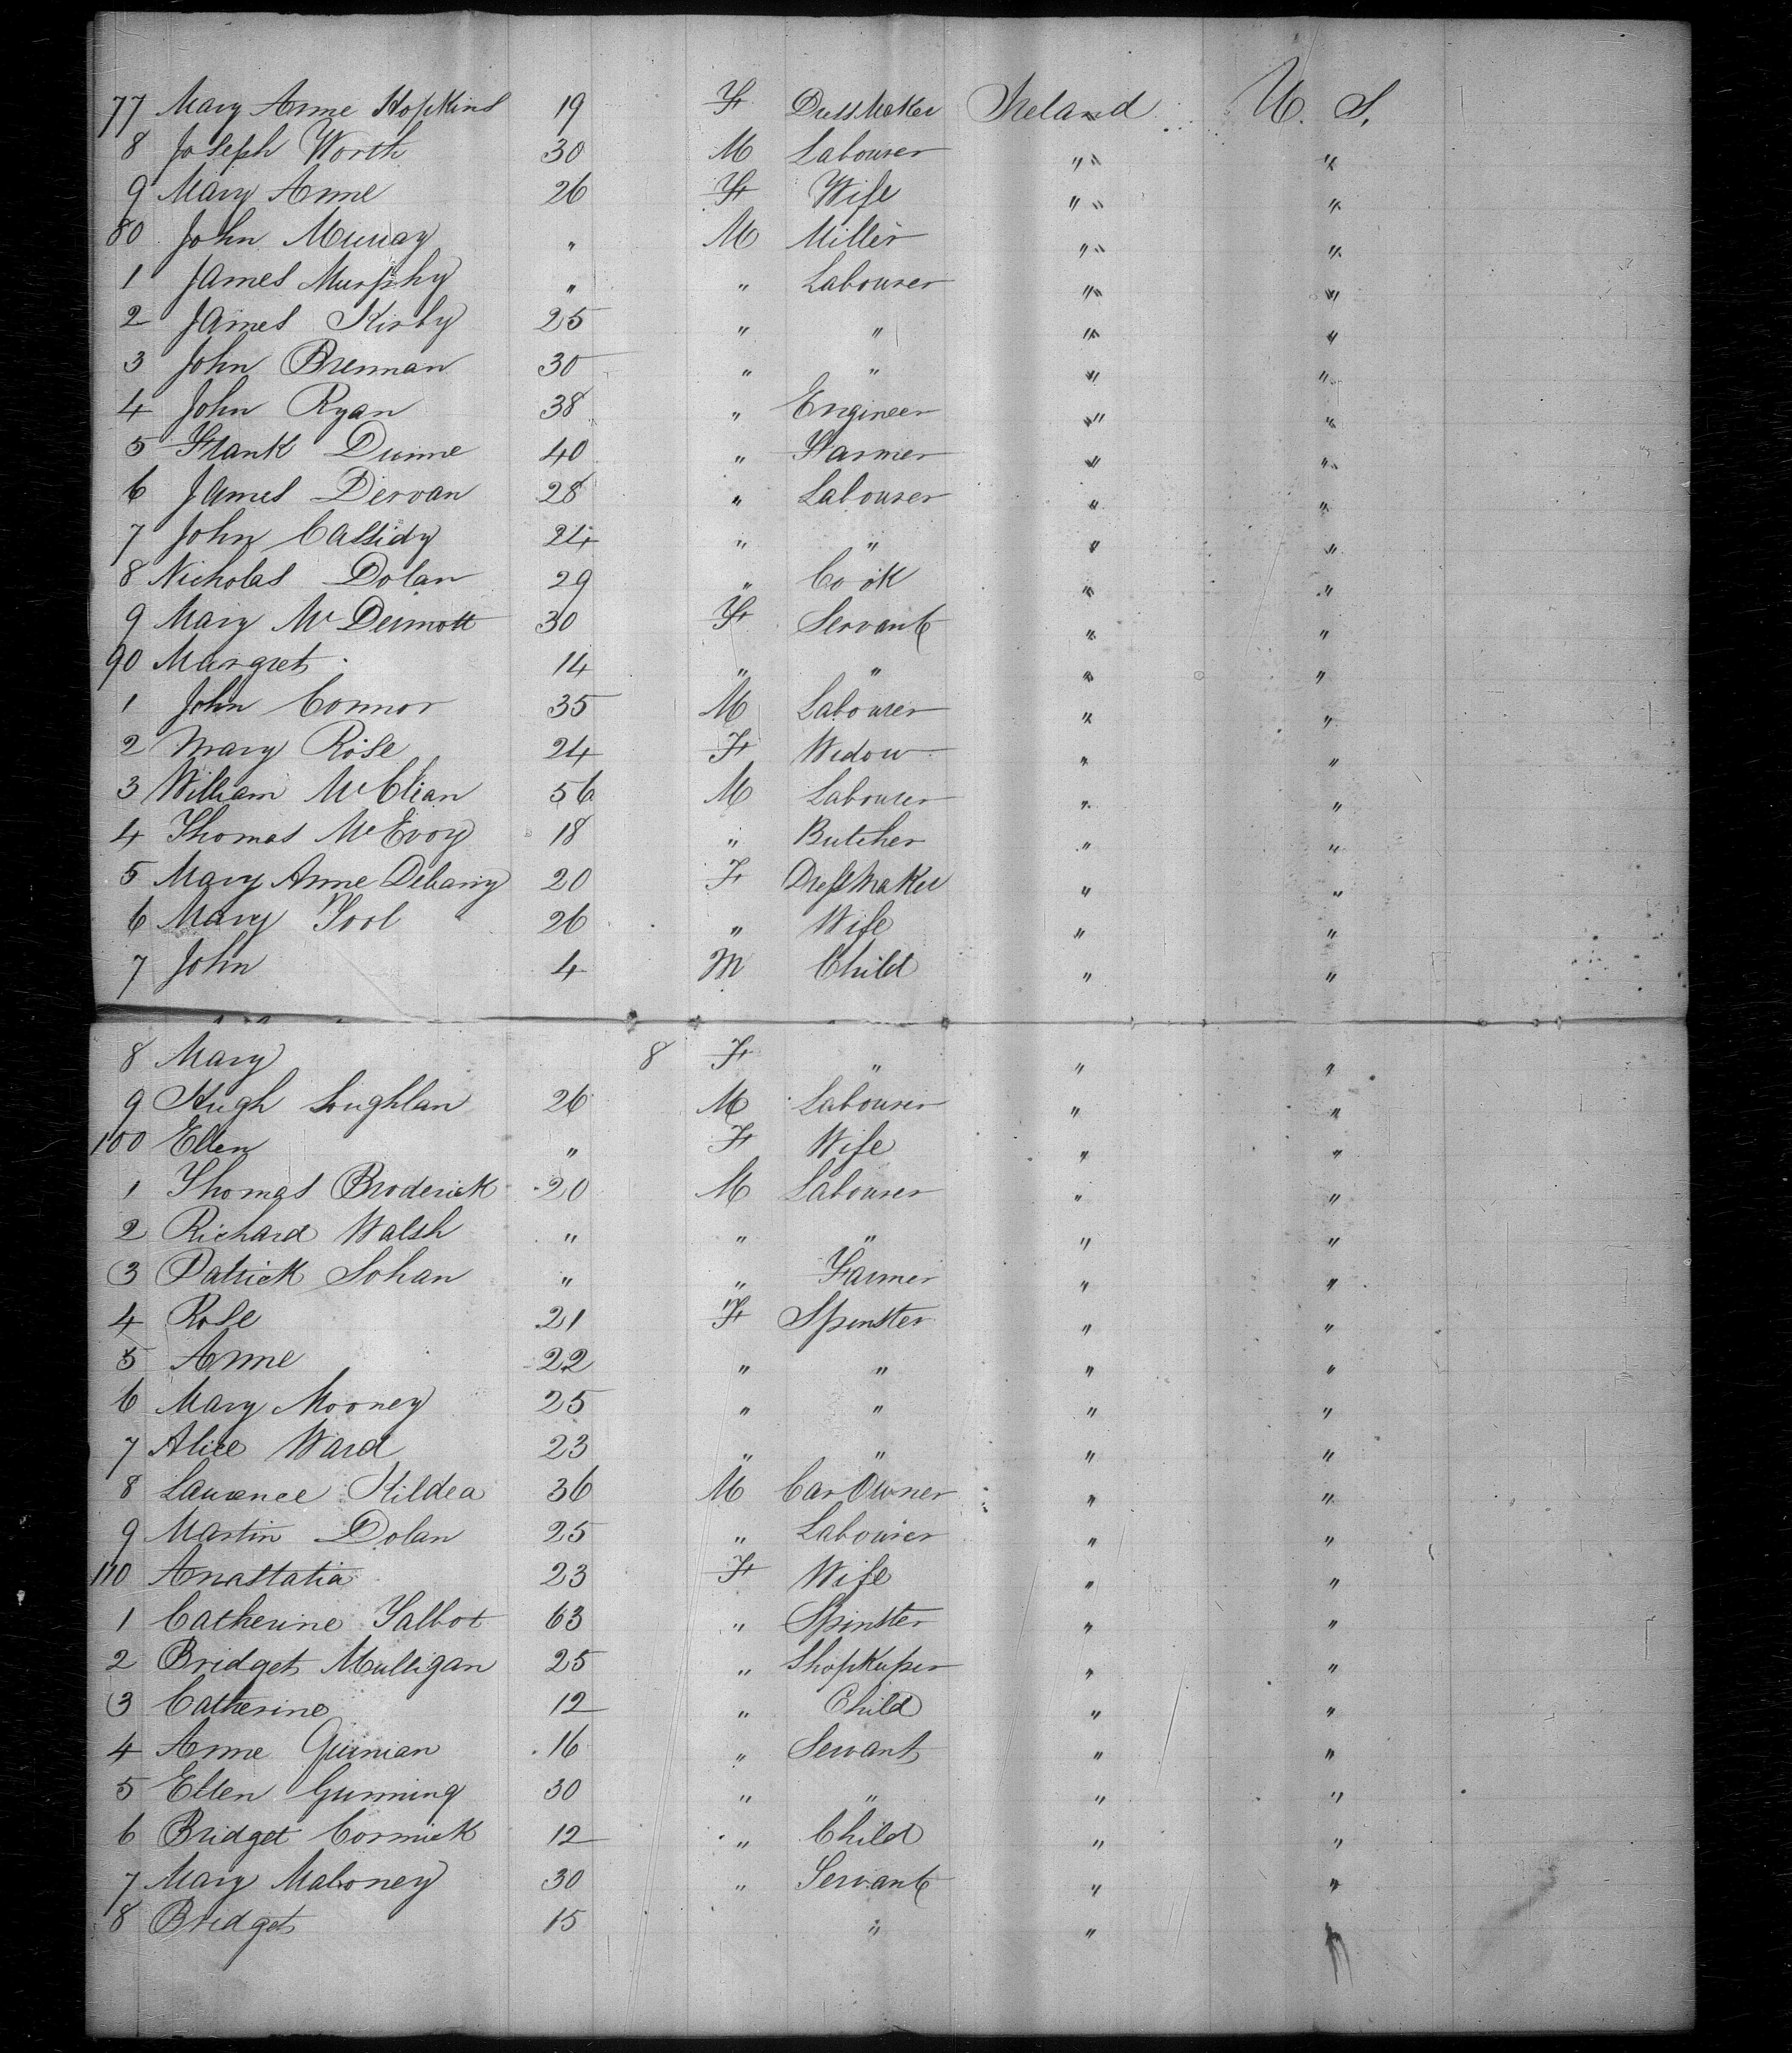 77 Mary Anne Hopkins 19 F DressMaker Ireland U. S.
8 Joseph Worth 30 M Labourer " "
9 Mary Anne 26 F Wife " "
80 John Murray " M Miller " "
1 James Murphy " " Labourer " "
2 James Kirby 25 " " " "
3 John Brennan 30 " " " "
4 John Ryan 38 " Engineer " "
5 Frank Dunne 40 " Farmer " "
6 James Dervan 28 " Labourer " "
7 John Cassidy 24 " " " "
8 Nicholas Dolan 29 " Cook " "
9 Mary McDermott 30 F Servant " "
90 Margret 14 " " " "
1 John Connor 35 M Labourer " "
2 Mary Rose 24 F Widow " "
3 William 56 M Labourer " "
4 Thomas McEvoy 18 " Butcher " "
5 Mary Anne Delany 20 F DressMaker " "
6 Mary Tool 26 " Wife " "
7 John 4 M Child " "
8 Mary 8 F " " "
9 Hugh Loughlan 26 M Labourer " "
100 Ellen " F Wife " "
1 Thomas Broderick 20 M Labourer " "
2 Richard Walsh " " " " "
3 Patrick Sohan " " Farmer " "
4 Rose 21 F Spinster " "
5 Anne 22 " " " "
6 Mary Mooney 25 " " " "
7 Alice Ward 23 " " " "
8 Laurence Kildea 36 M Car Owner " "
9 Martin Dolan 25 " Labourer " "
110 Anastatia 23 F Wife " "
1 Catherine Talbot 63 " Spinster " "
2 Bridget Mulligan 25 " Shopkeeper " "
3 Catherine 12 " Child " "
4 Anne Guinian 16 " Servant " "
5 Ellen Gunning 30 " " " "
6 Bridget Cormick 12 " Child " "
7 Mary Mahoney 30 " Servant " "
8 Bridget 15 " " "